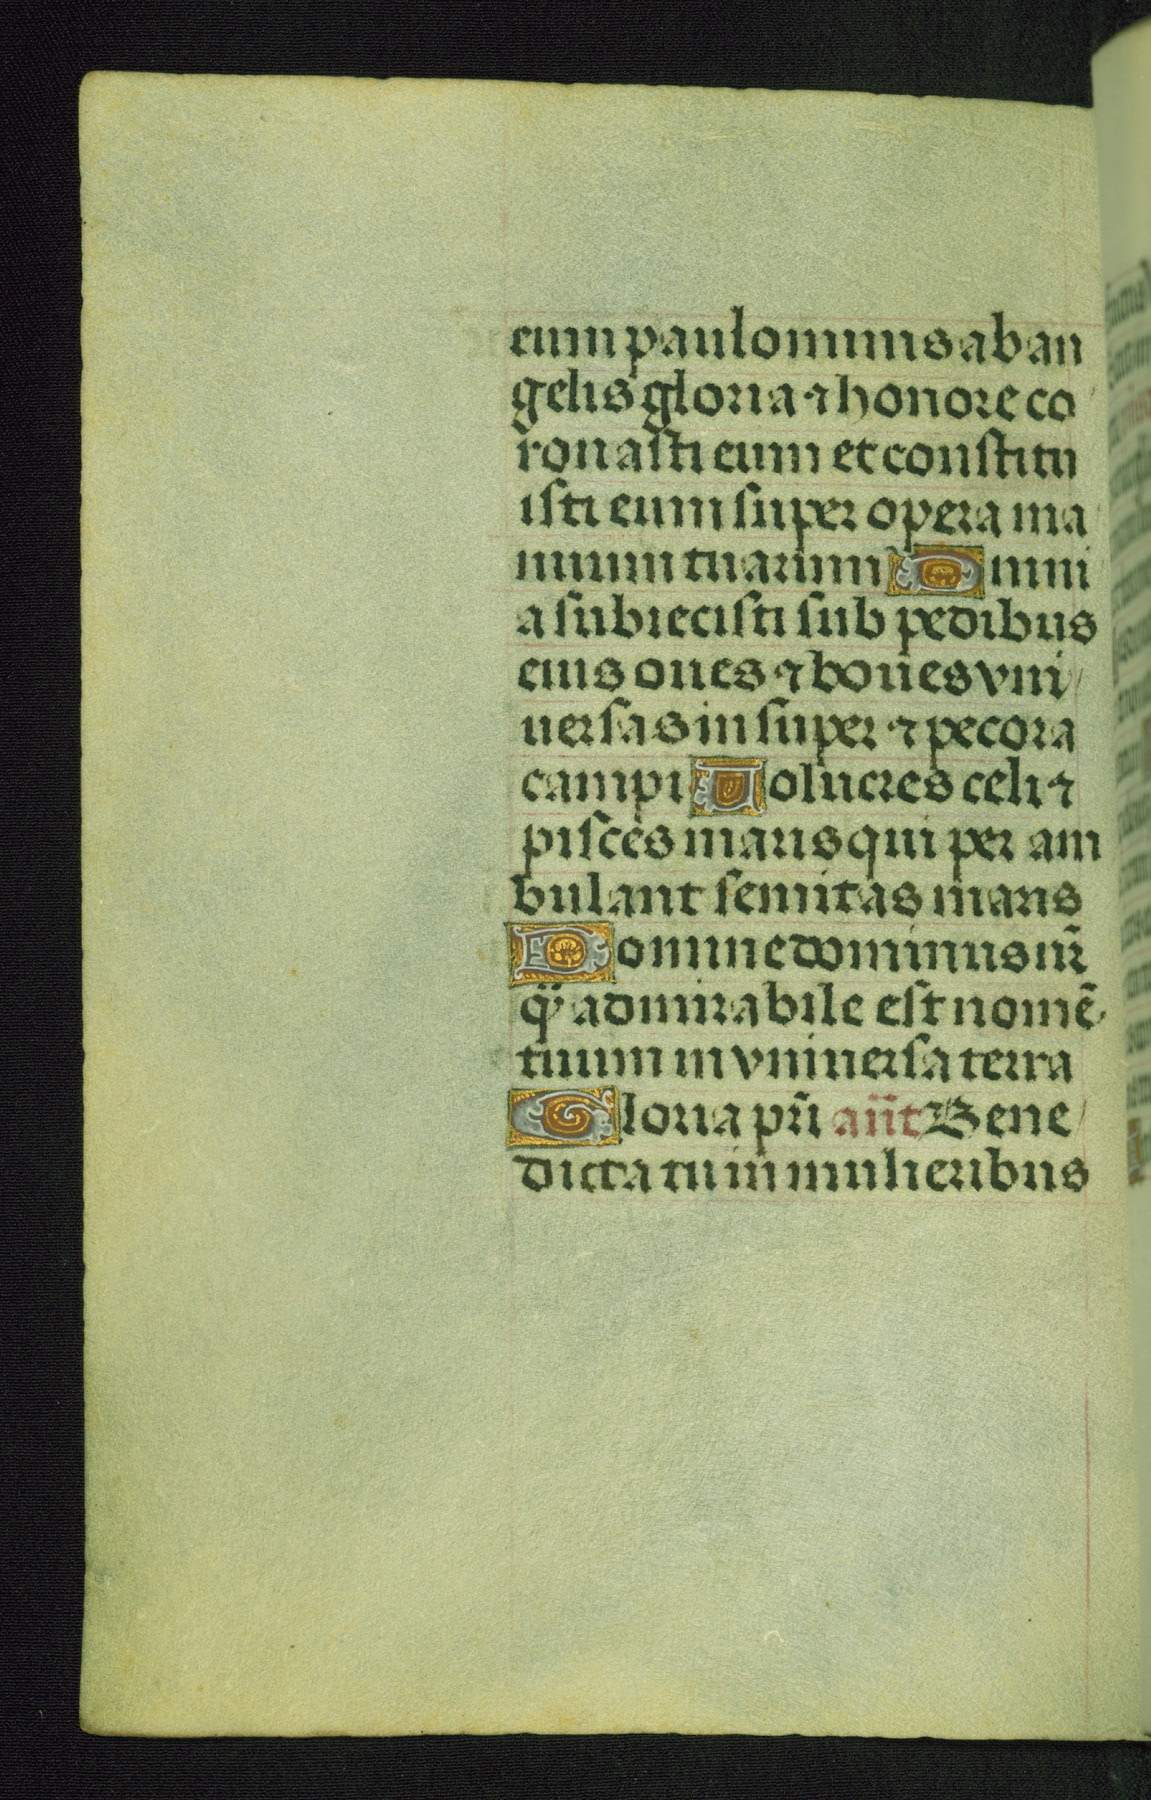 eum paulominus ab an
gelis gloria ⁊ honore co
ronasti eum et constitu
isti eum super opera ma
nuum tuarum Omni
a subiecisti sub pedibus
eius oues ⁊ boues vni
uersas in super ⁊ pecora
campi Volucres celi ⁊
pisces maris qui per am
bulant semitas maris
Domine dominus nr̄
q̈ admirabile est nomē
tuum in vniuersa terra
Gloria pr̄i añt Bene
dicta tu in mulieribus